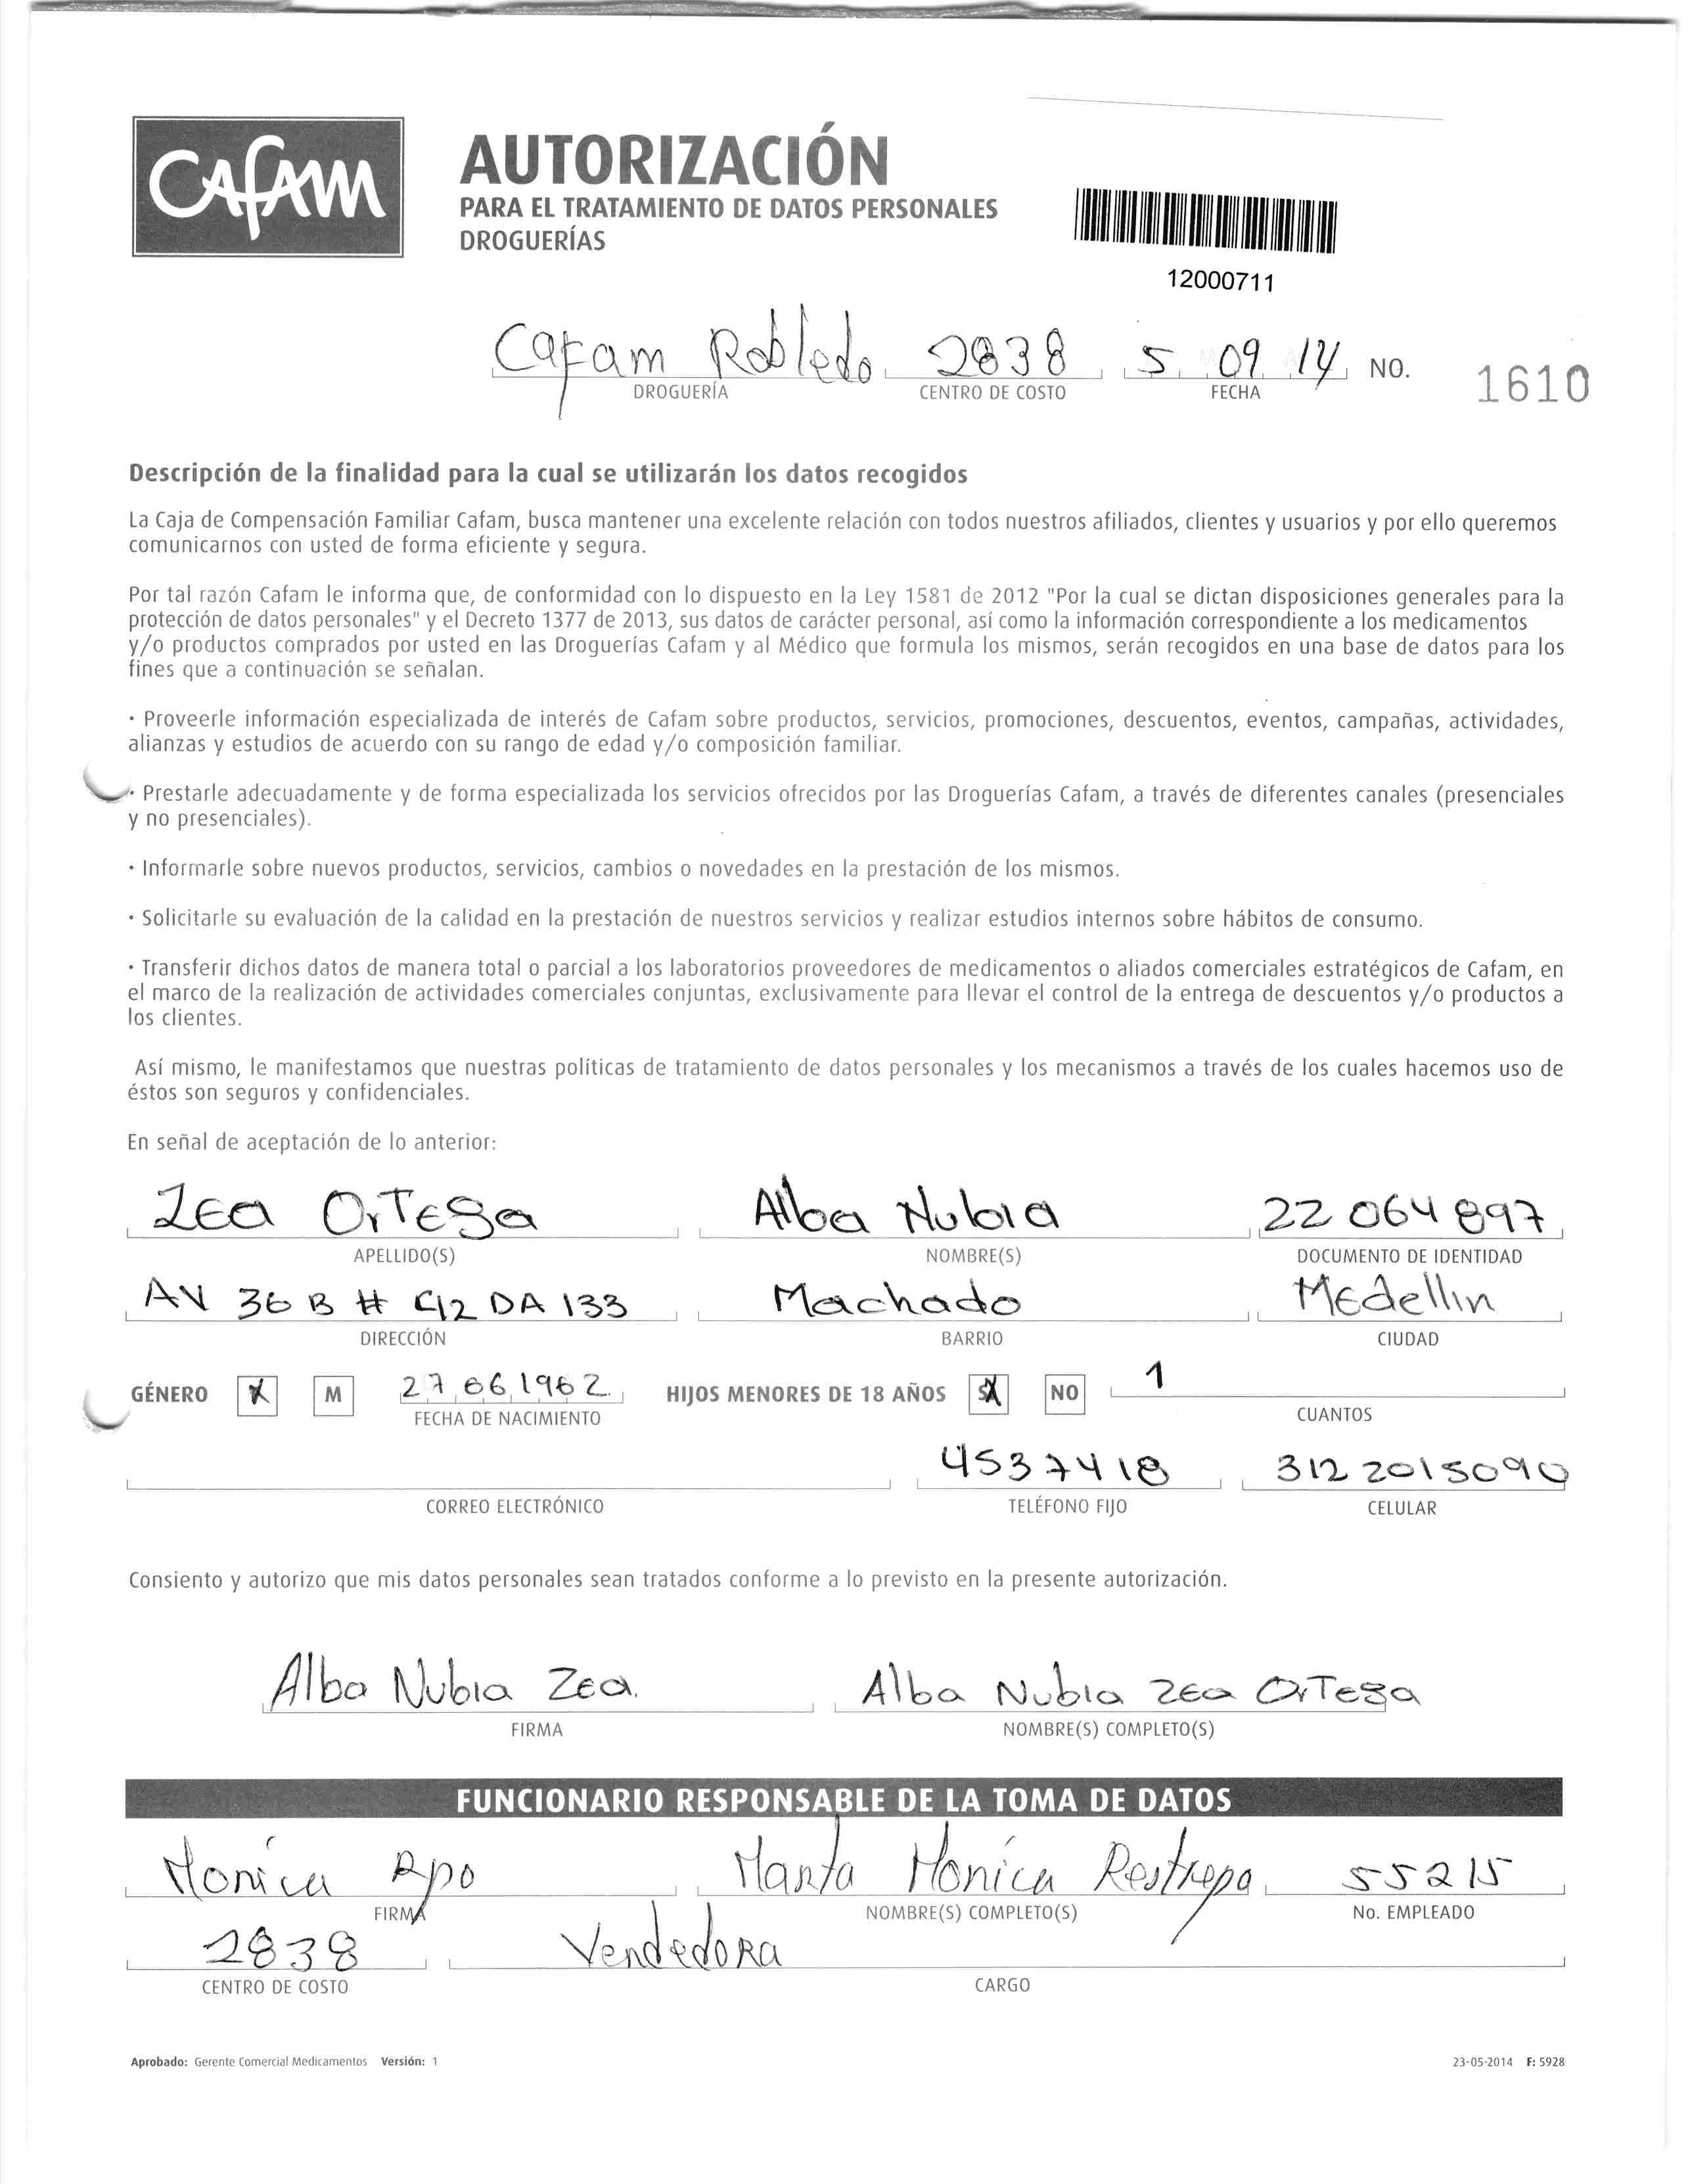 CAFAM
AUTORIZACIÓN
PARA EL TRATAMIENTO DE DATOS PERSONALES
DROGUERÍAS
12000711
Cafam Robledo 2838 5 09 14 NO. 1610
DROGUERÍA CENTRO DE COSTO FECHA
Descripción de la finalidad para la cual se utilizarán los datos recogidos
La Caja de Compensación Familiar Cafam, busca mantener una excelente relación con todos nuestros afiliados, clientes y usuarios y por ello queremos
comunicarnos con usted de forma eficiente y segura.
Por tal razón Cafam le informa que, de conformidad con lo dispuesto en la Ley 1581 de 2012 "Por la cual se dictan disposiciones generales para la
protección de datos personales" y el Decreto 1377 de 2013, sus datos de carácter personal, así como la información correspondiente a los medicamentos
y/o productos comprados por usted en las Droguerías Cafam y al Médico que formula los mismos, serán recogidos en una base de datos para los
fines que a continuación se señalan.
· Proveerle información especializada de interés de Cafam sobre productos, servicios, promociones, descuentos, eventos, campañas, actividades,
alianzas y estudios de acuerdo con su rango de edad y/o composición familiar.
· Prestarle adecuadamente y de forma especializada los servicios ofrecidos por las Droguerías Cafam, a través de diferentes canales (presenciales
y no presenciales).
· Informarle sobre nuevos productos, servicios, cambios o novedades en la prestación de los mismos.
· Solicitarle su evaluación de la calidad en la prestación de nuestros servicios y realizar estudios internos sobre hábitos de consumo.
· Transferir dichos datos de manera total o parcial a los laboratorios proveedores de medicamentos o aliados comerciales estratégicos de Cafam, en
el marco de la realización de actividades comerciales conjuntas, exclusivamente para llevar el control de la entrega de descuentos y/o productos a
los clientes.
Así mismo, le manifestamos que nuestras políticas de tratamiento de datos personales y los mecanismos a través de los cuales hacemos uso de
éstos son seguros y confidenciales.
En señal de aceptación de lo anterior:
Zea Ortega Alba Nubia 22 064 897
APELLIDO(S) NOMBRE(S) DOCUMENTO DE IDENTIDAD
AV 36 B # DA 133 Machado Medellin
DIRECCIÓN BARRIO CIUDAD
GÉNERO X M 27 06 1962 HIJOS MENORES DE 18 AÑOS X NO 1
FECHA DE NACIMIENTO CUANTOS
4537418 312 2015090
CORREO ELECTRÓNICO TELÉFONO FIJO CELULAR
Consiento y autorizo que mis datos personales sean tratados conforme a lo previsto en la presente autorización.
Alba Nubia Zea. Alba Nubia Zea Ortega
FIRMA NOMBRE(S) COMPLETO(S)
FUNCIONARIO RESPONSABLE DE LA TOMA DE DATOS
Monica Rpo Marta Monica Restrepo 55215
FIRMA NOMBRE(S) COMPLETO(S) No. EMPLEADO
2838 Vendedora
CENTRO DE COSTO CARGO
Aprobado: Gerente Comercial Medicamentos Versión: 1 23-05-2014 F: 5928